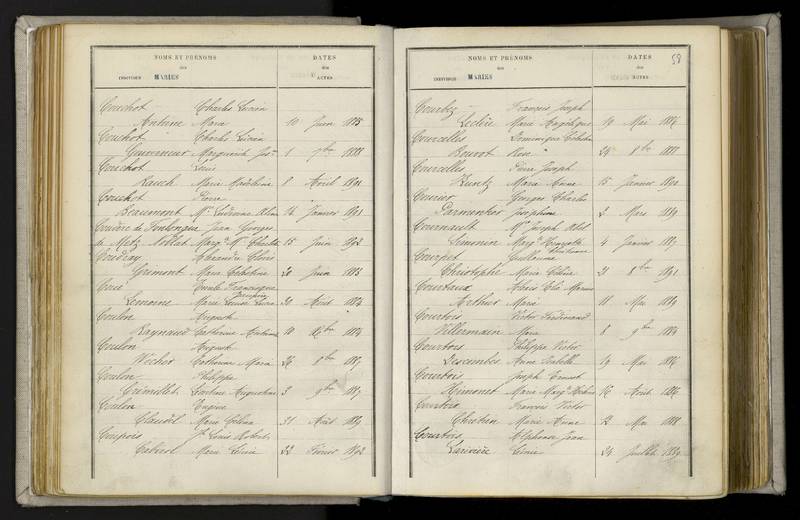 NOMS ET PRÉNOMS
DATES
des
des
INDIVIDUS MARIÉS
ACTES
Couchot Charles Lucien
Antoine Maria 10 Juin 1885
Couchot Charles Lucien
Guinineur Marguerite 1 7bre 1888
Couchot Louis
Rauch Marie Madeleine 8 Avril 1891
Couchot Pierre
Beaumont Mie Ludivine 12 Janvier 1891
Coudère de Fontongue Jean Georges
de Metz Noblat Marg. Mie 15 Juin 1892
Coudray Alexandre Clovis
Grimont Marie Célestine 20 Juin 1883
Coué Emile Françisque
Lemoine Marie Louise 30 Août 1884
Coulon August
Raynaud Catherine 10 1884
Coulon August
Wéchor Catherine Marie 26 8bre 1887
Coulon Philippe
Grémillet Léontine Augustine 3 9bre 1887
Coulon Eugène
Claudel Marie Célina 31 Août 1889
Coupois Jh Louis Robert
Cabirol Marie 22 Février 1892
NOMS ET PRÉNOMS
DATES
58
des
des
INDIVIDUS MARIÉS
ACTES
Courbez François Joseph
Leclère Marie Angélique 19 Mai 1886
Courcelles Dominique
Bouvot Rose 24 8bre 1888
Courcelles Pierre Joseph
Kuntz Marie Anne 15 Janvier 1890
Courier Georges Charles
Parmentier Joséphine 2 Mars 1889
Cournault Mie Joseph Abel
Simonin Marg. 4 Janvier 1887
Courpet Guillaume
Christophe Marie Céline 21 8bre 1891
Courtaux
Arthur Marie 11 Mai 1889
Courtois Victor Ferdinand
Villermain Marie 8 9bre 1884
Courtois Philippe Victor
Descombes Anne Isabelle 19 Mai 1886
Courtois Joseph Ernest
Himonet Marie Marg. 16 Août 1886
Courtois François Victor
Chrétien Marie Anne 12 Mai 1888
Courtois Alphonse Jean
Larivière 24 Juillet 1889